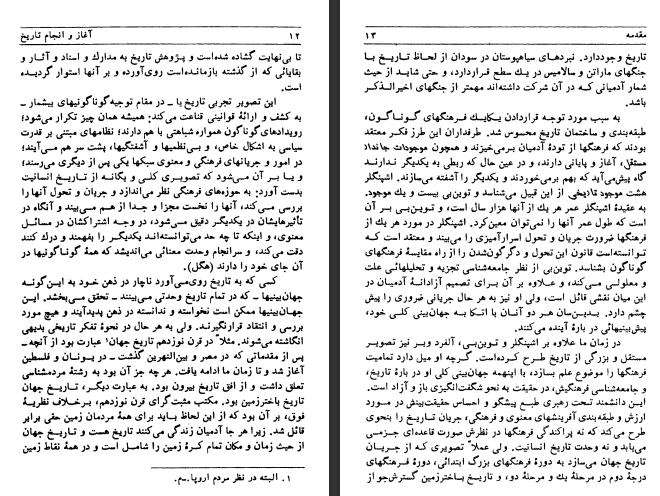 ۱۲ آغاز و انجام تاریخ
تا بی‌نهایت گشاده شده‌است و پژوهش تاریخ به مدارك و اسناد و آثار و
بقایائی که از گذشته بازمانده‌است روی‌آورده و بر آنها استوار گردیده
است.
این تصویر تجربی تاریخ یا ـ در مقام توجیه گوناگونیهای بیشمار ـ
به کشف و ارائهٔ قوانینی قناعت می‌کند: همیشه همان چیز تکرار می‌شود؛
رویدادهای گوناگون همواره شباهتی با هم دارند؛ نظامهای مبتنی بر قدرت
سیاسی به اشکال خاص، و بی‌نظمیها و آشفتگیها، پشت سر هم می‌آیند؛
در امور و جریانهای فرهنگی و معنوی سبکها یکی پس از دیگری می‌رسند؛
و یا بر آن می‌شود که تصویری کلی و یگانه از تاریخ انسانیت
بدست آورد: به حوزه‌های فرهنگی نظر می‌اندازد و جریان و تحول آنها را
بررسی می‌کند، آنها را نخست مجزا و جدا از هم می‌بیند و آنگاه در
تأثیرهایشان در یکدیگر دقیق می‌شود، در وجه اشتراکشان در مسائل
معنوی، و اینکه تا چه حد می‌توانسته‌اند یکدیگر را بفهمند و درك کنند
دقت می‌کند، و سرانجام وحدت معنائی می‌اندیشد که همهٔ گوناگونیها در
آن جای خود را دارند (هگل).
کسی که به تاریخ روی‌می‌آورد ناچار در ذهن خود به این‌گونه
جهان‌بینیها ـ که در تمام تاریخ وحدتی می‌بینند ـ تحقق می‌بخشد. این
جهان‌بینیها ممکن است نخواسته و ندانسته در ذهن پدیدآیند و هیچ مورد
بررسی و انتقاد قرارنگیرند. ولی به هر حال در نحوهٔ تفکر تاریخی بدیهی
انگاشته می‌شوند. مثلاً در قرن نوزدهم تاریخ جهان۱ عبارت بود از آنچه ـ
پس از مقدماتی که در مصر و بین‌النهرین گذشت ـ در یونان و فلسطین
آغاز شد و تا زمان ما ادامه یافت. هر چه جز آن بود به رشتهٔ مردمشناسی
تعلق داشت و از افق تاریخ بیرون بود. به عبارت دیگر، تاریخ جهان
تاریخ باخترزمین بود. مکتب مثبت‌گرای قرن نوزدهم، برخلاف نظریهٔ
فوق، بر آن بود که از این لحاظ باید برای همهٔ مردمان زمین حقی برابر
قائل شد. زیرا هر جا آدمیان زندگی می‌کنند تاریخ هست و تاریخ جهان
از حیث زمان و مکان تمام کرهٔ زمین را شامل است و در همهٔ نقاط زمین
۱. البته در نظر مردم اروپا.ـم.
مقدمه ۱۳
تاریخ وجوددارد. نبردهای سیاهپوستان در سودان از لحاظ تاریخ با
جنگهای ماراتن و سالامیس در یك سطح قراردارد، و حتی شاید از حیث
شمار آدمیانی که در آن شرکت داشته‌اند مهمتر از جنگهای اخیرالذکر
باشد.
به سبب مورد توجه قراردادن یکایك فرهنگهای گوناگون،
طبقه‌بندی و ساختمان تاریخ محسوس شد. طرفداران این طرز فکر معتقد
بودند که فرهنگها از تودهٔ آدمیان برمی‌خیزند و همچون موجودات جاندار
مستقل، آغاز و پایانی دارند، و در عین حال که ربطی به یکدیگر ندارند
گاه پیش‌می‌آید که بهم برمی‌خوردند و یکدیگر را آشفته می‌سازند. اشپنگلر
هشت موجود تاریخی از این قبیل می‌شناسد و توین‌بی بیست و یك موجود.
به عقیدهٔ اشپنگلر عمر هر یك از آنها هزار سال است، و توین‌بی بر آن
است که طول عمر آنها را نمی‌توان معین‌کرد. اشپنگلر در مورد هر یك از
فرهنگها ضرورت جریان و تحول اسرارآمیزی را می‌بیند و معتقد است که
توانسته‌است قانون این تحول و دگرگون‌شدن را از راه مقایسهٔ فرهنگهای
گوناگون بشناسد. توین‌بی از نظر جامعه‌شناسی تجزیه و تحلیلهائی علت
و معلولی می‌کند، و علاوه بر آن برای تصمیم آزادانهٔ آدمیان در
این میان نقشی قائل است، ولی او نیز به هر حال جریانی ضروری را پیش
چشم دارد. بدین‌سان هر دو آنان با اتکا به جهان‌بینی کلی خود،
پیش‌بینیهائی در بارهٔ آینده می‌کنند.
در زمان ما علاوه بر اشپنگلر و توین‌بی، آلفرد وبر نیز تصویر
مستقل و بزرگی از تاریخ طرح کرده‌است. گرچه او میل دارد تمامیت
فرهنگها را موضوع علم بسازد، با اینهمه جهان‌بینی کلی او از تاریخ،
و جامعه‌شناسی فرهنگیش، در حقیقت به نحو شگفت‌انگیزی باز و آزاد است.
این دانشمند تحت رهبری طبع پیشگو و احساس حقیقت‌بینش در مورد
ارزش و طبقه‌بندی آفرینشهای معنوی و فرهنگی، جریان تاریخ را بنحوی
طرح می‌کند که نه پراکندگی فرهنگها در نظرش صورت قاعده‌ای جزمی
می‌یابد و نه وحدت تاریخ انسانیت. ولی عملاً تصویری که از جریان
تاریخ جهان می‌سازد به دورهٔ فرهنگهای بزرگ ابتدائی، دورهٔ فرهنگهای
درجهٔ دوم در مرحلهٔ یك و مرحلهٔ دو، و تاریخ باخترزمین گسترش‌جو از